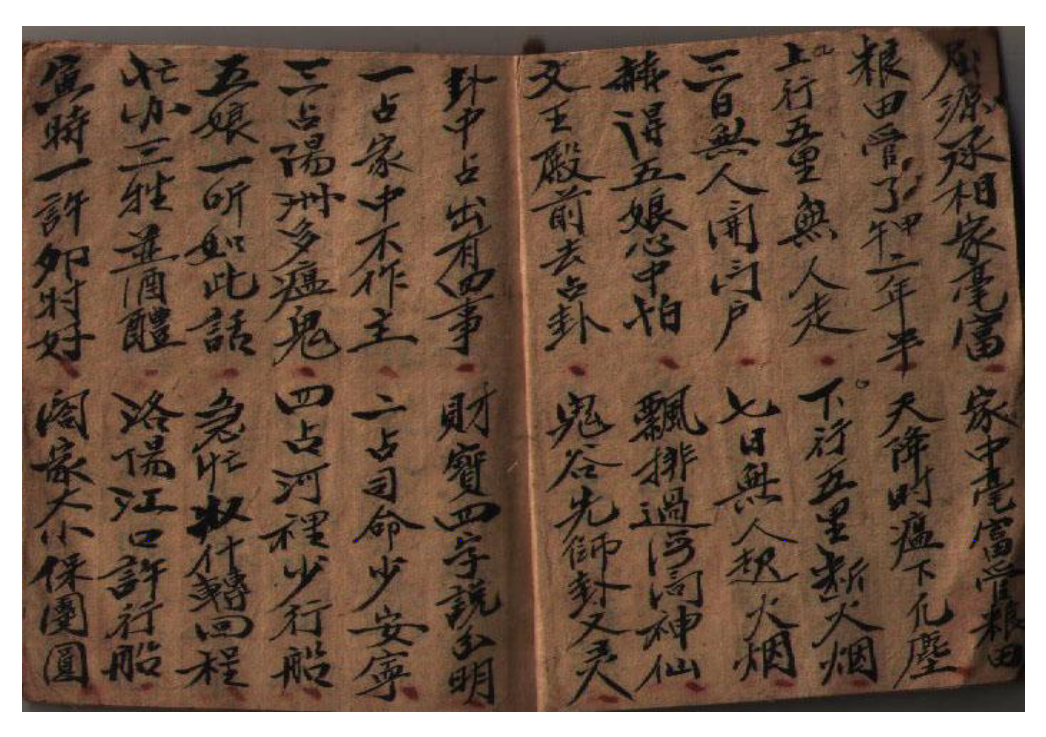 屈源承相家毫富 家中毫富管粮田
粮田管了甲午二年半 天降时瘟下凡塵
上行五里無人走 下行五里断火烟
三日無人開门户 七日無人起火烟
赫得五娘心中怕 飄排過河问神仙
文王殿前去占卦 鬼谷先師卦又灵
卦中占出有四事 財寶四字説分明
一占家中不作主 二占司命少安寧
三占陽州多瘟鬼 四占河裡少行船
五娘一听如此話 急忙收什轉回程
忙办三牲並酒醴 洛陽江口許行船
寅時一許卯时好 閤家大小保團圓